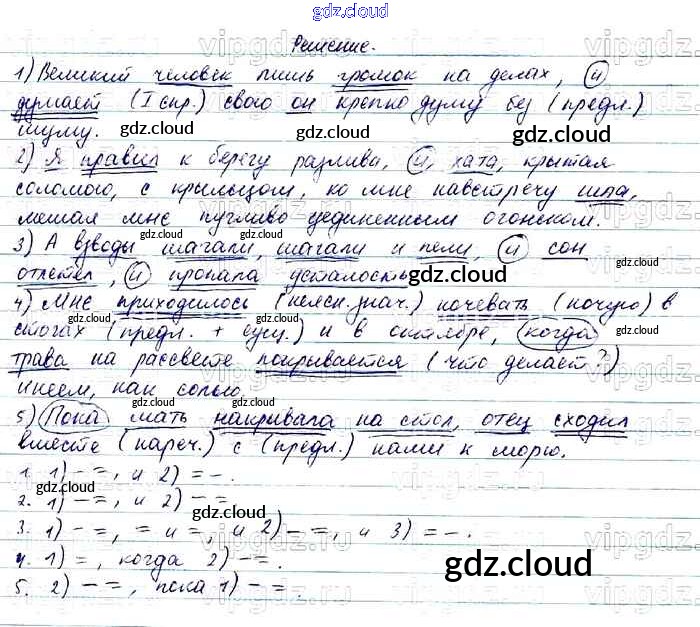 gdz.cloud
Решение.
1) Великий человек лишь громок на делах, и
думает (I спр.) свою он крепко думу без (предл.)
шуму.
2) Я правил к берегу разлива, и, хата, крытая
соломою, с крыльцом, ко мне навстречу шла,
мешая мне пугливо уединенным огоньком.
3) А взводы шагали, шагали и пели, и сон
отлетел, и пропала усталость.
4) Мне приходилось (неясн. знач.) ночевать (ночую) в
стогах (предл. + сущ.) и в октябре, когда
трава на рассвете покрывается (что делает?)
инеем, как солью.
5) Пока мать накривала на стол, отец сходил
вместе (нареч.) с (предл.) нами к морю.
1. 1) – =, и 2) = –.
2. 1) – =, и 2) – =
3. 1) – =, = и =, и 2) – =, и 3) = –.
4. 1) =, когда 2) – =.
5. 2) – =, пока 1) – =.
gdz.cloud